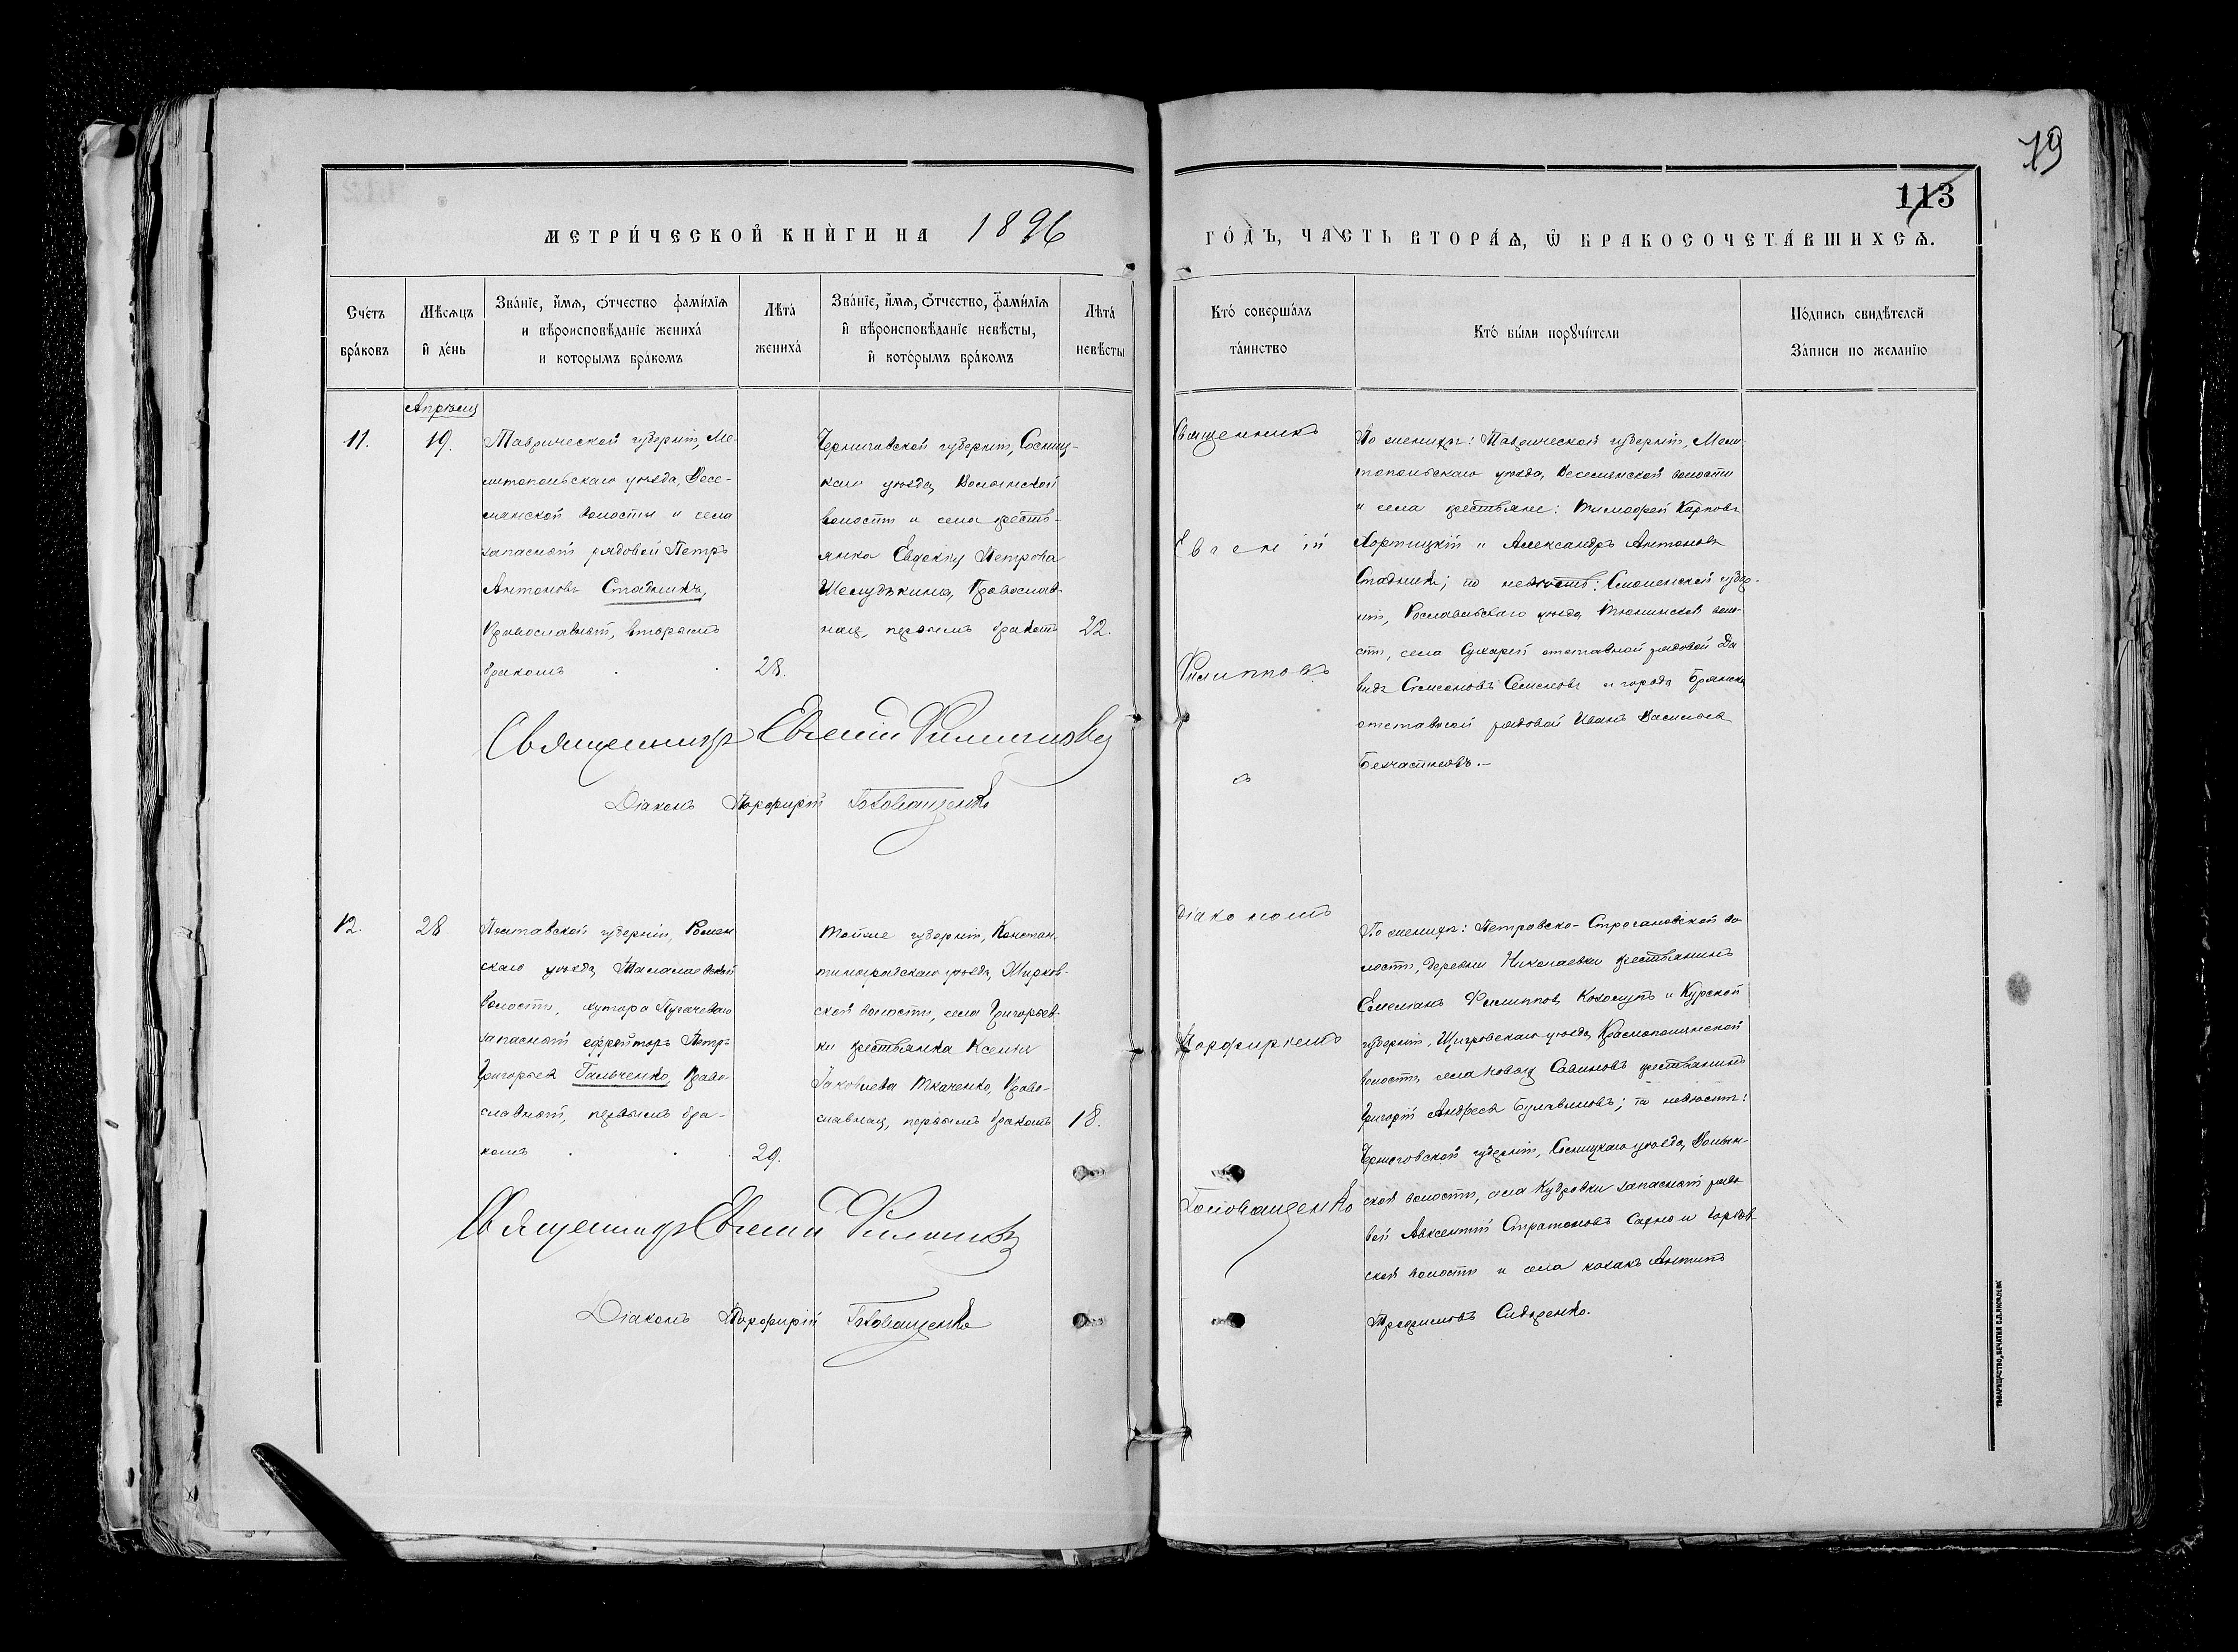 19
113
МЕТРИ́ЧЕСКОЙ КНИ́ГИ НА 1896
ГО́ДЪ, ЧА́СТЬ ВТОРА́Ѧ, Ѿ БРАКОСОЧЕТА́ВШИХСѦ.
Сче́тъ
бра́ковъ
Мѣ́сѧцъ
и҆ де́нь
Зва́нїе, и҆́мѧ, ѻ҆́тчество фамилїѧ
и вѣроисповѣ́данїе жениха́
и которымъ бра́комъ
Лѣта́
жениха́
Зва́нїе, и҆́мѧ, ѻ҆́тчество, фами́лїѧ
и҆ вѣроисповѣ́данїе невѣ́сты,
и҆ кото́рымъ бра́комъ
Лѣта́
невѣ́сты
Кто́ соверша́лъ
та́инство
Кто́ бы́ли порꙋчи́тели
По́дпись свидѣ́телей
За́писи по жела́нїю
Апрѣля
11.
19.
Таврической губерніи, Ме-
литопольскаго уѣзда, Весе-
лянской волости и села
запасной рядовой Петръ
Антоновъ Стадникъ,
Православный, вторымъ
бракомъ
28.
Черниговской губерніи, Сосниц-
каго уѣзда, Волынской
волости и села кресть-
янка Евдокія Петрова
Шелудькина, Православ-
ная, первымъ бракомъ
22.
Священникъ
Евгеній
Филипповъ
По женихѣ: Таврической губерніи, Мели-
топольскаго уѣзда, Веселянской волости
и села крестьяне: Тимофей Карповъ
Хортицкій и Александръ Антоновъ
Стадникъ; по невѣстѣ: Смоленской губер-
ніи, Рославльскаго уѣзда, Тюнинской воло-
сти, села Сухарей отставной рядовой Да
видъ Симеоновъ Семеновъ и города Брянска
отставной рядовой Иванъ Васильевъ
Безчастновъ.—
Священникъ Евгеній Филипповъ
Діаконъ Порфирій Головащенко
12.
28
Полтавской губерніи, Ромен
скаго уѣзда, Талалаевской
волости, хутора Пугачеваго
запасной ефрейторъ Петръ
Григорьевъ Гальченко, Право-
славный, первымъ бра-
комъ
29.
Тойже губерніи, Констан-
тиноградскаго уѣзда, Жирков-
ской волости, села Григорьев-
ки крестьянка Ксенія
Іаковлева Ткаченко, Право-
славная, первымъ бракомъ
18.
діакономъ
Порфиріемъ
Головащенко
По женихѣ: Петровско-Строгановской во-
лости, деревни Николаевки крестьянинъ
Емеліанъ Филипповъ Колосупъ и Курской
губерніи, Щигровскаго уѣзда, Краснополянской
волости, села Новыхъ Савиновъ крестьянинъ
Григорій Андреевъ Булавиновъ; по невѣстѣ:
Черниговской губерніи, Сосницкаго уѣзда, Волын-
ской волости, села Кудровки запасной рядо
вой Авксентій Стратоновъ Сахно и
ской волости и села козакъ Антипъ
Трофимовъ Сидоренко.
Священникъ Евгеній Филипповъ
Діаконъ Порфирій Головащенко